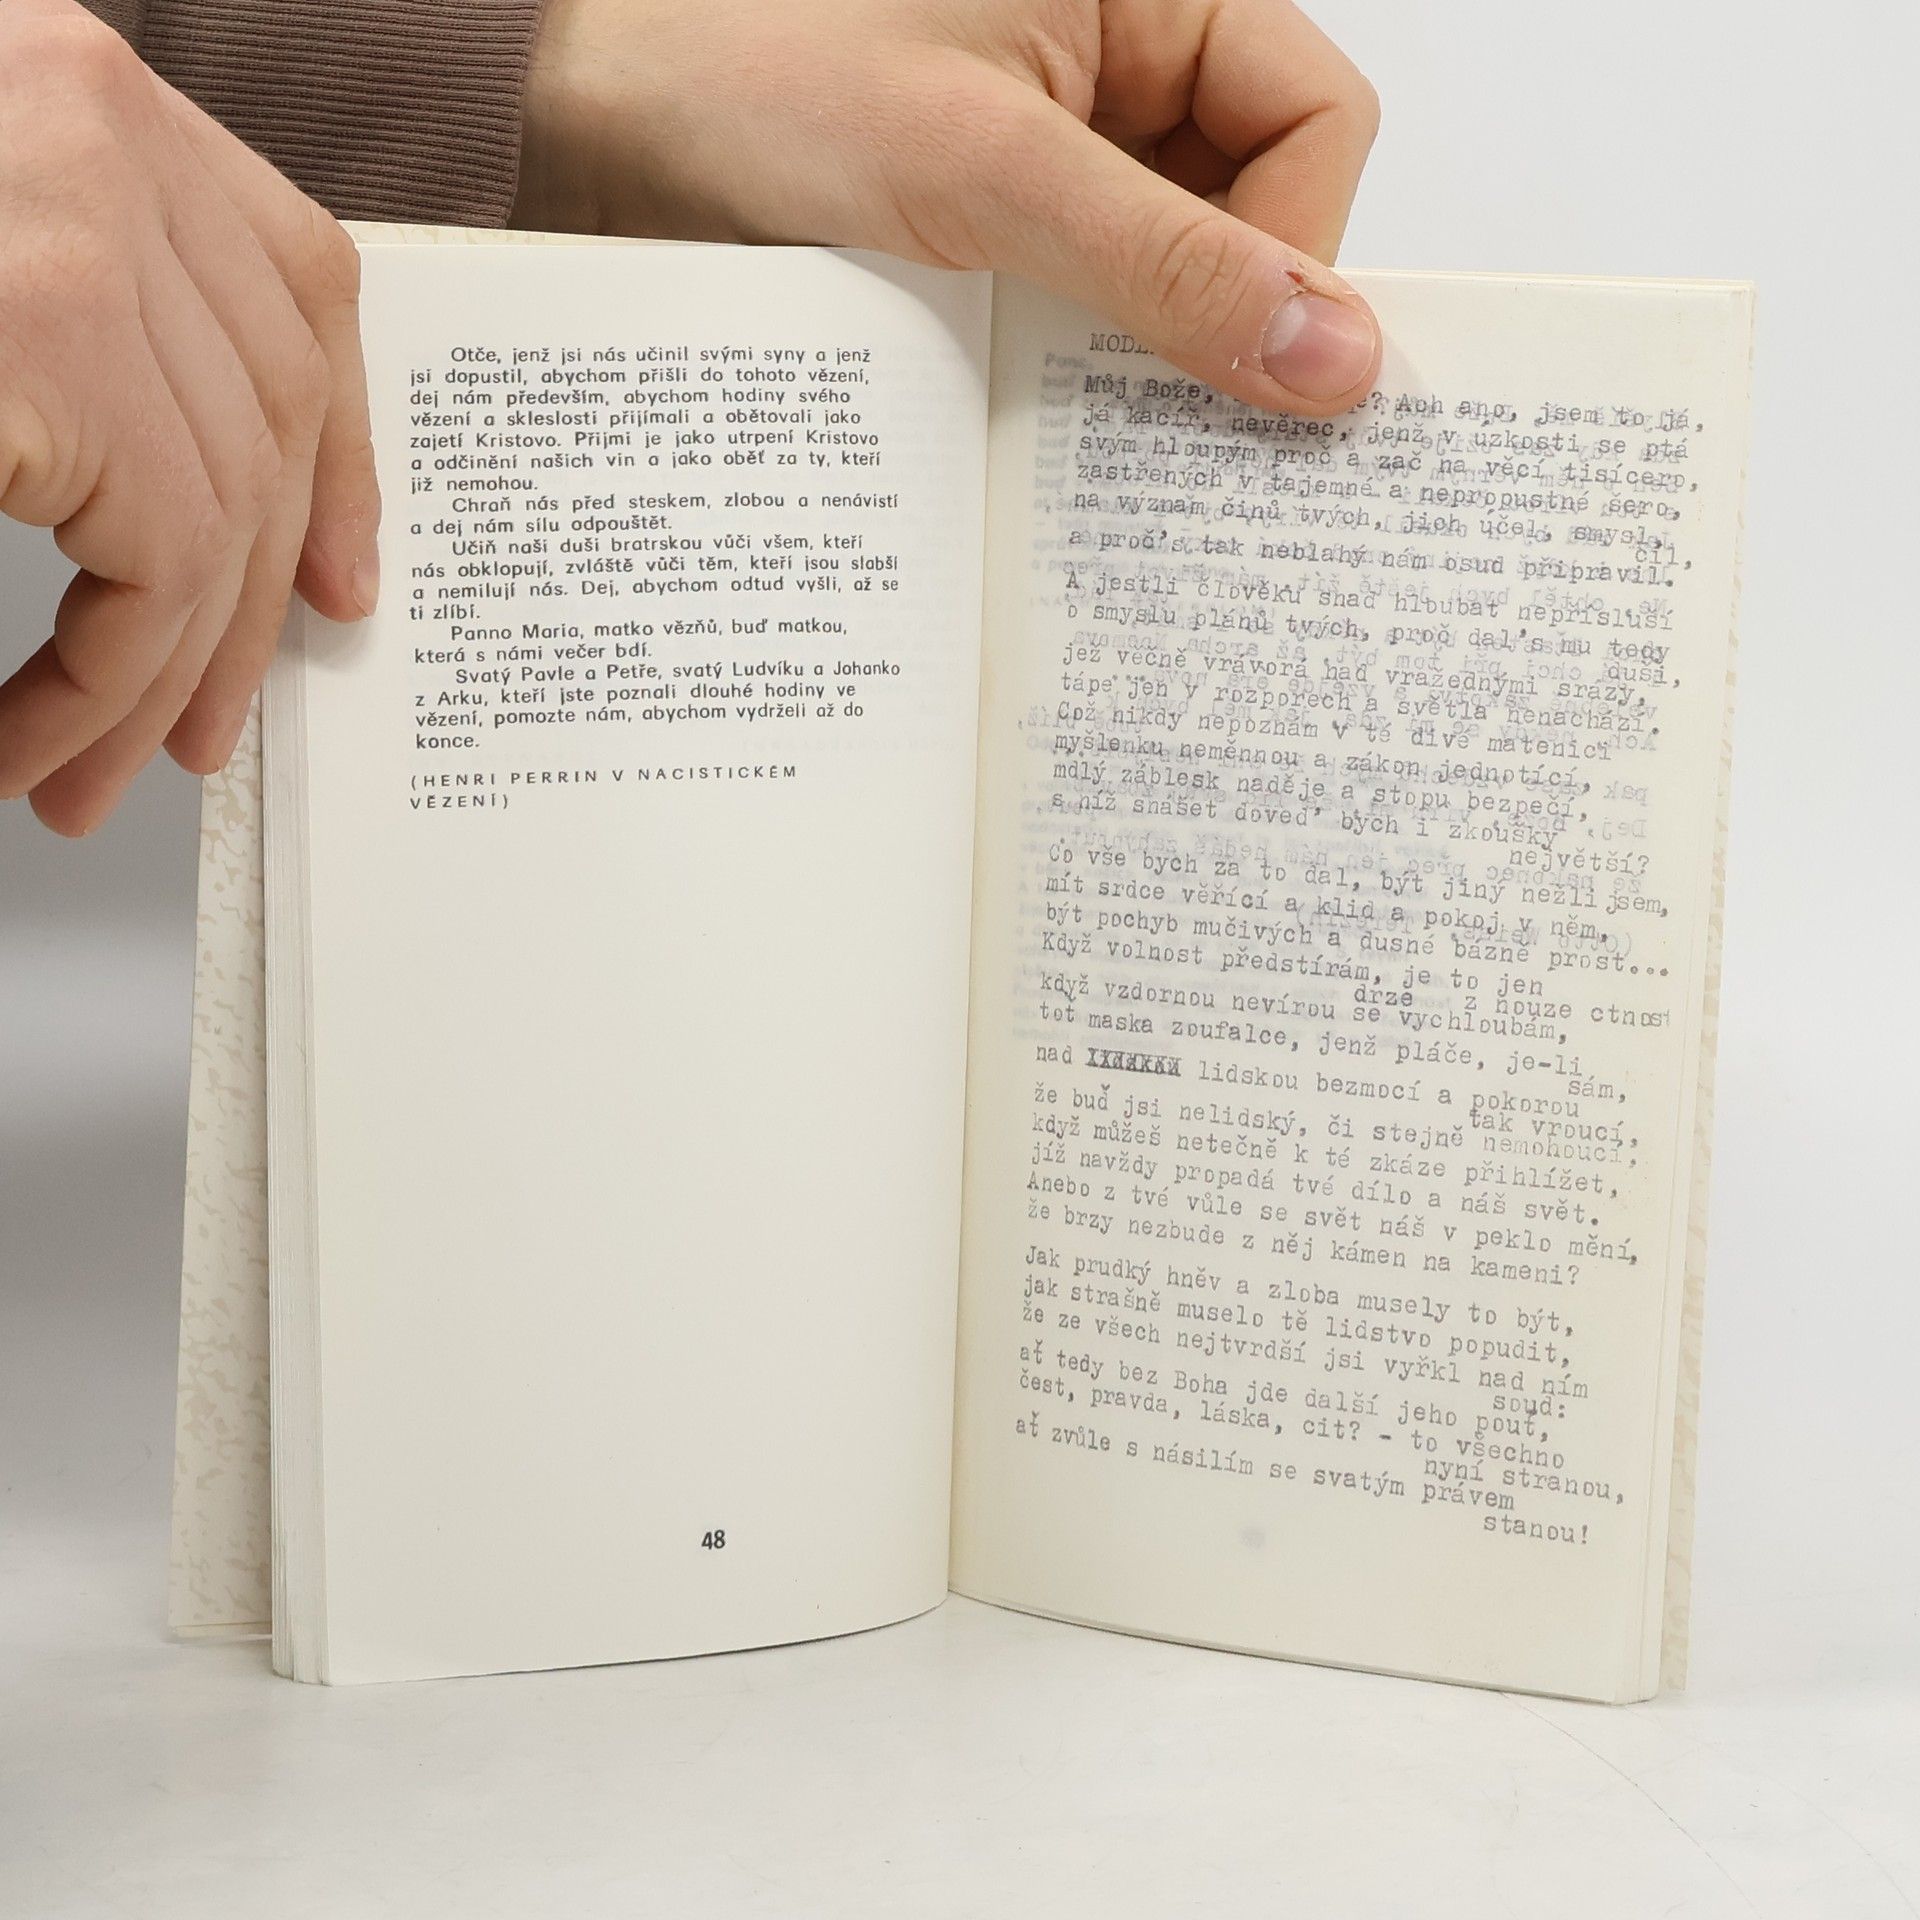 Otče, jenž jsi nás učinil svými syny a jenž
jsi dopustil, abychom přišli do tohoto vězení,
dej nám především, abychom hodiny svého
vězení a skleslosti přijímali a obětovali jako
zajetí Kristovo. Přijmi je jako utrpení Kristovo
a odčinění našich vin a jako oběť za ty, kteří
již nemohou.
Chraň nás před steskem, zlobou a nenávistí
a dej nám sílu odpouštět.
Učiň naši duši bratrskou vůči všem, kteří
nás obklopují, zvláště vůči těm, kteří jsou slabší
a nemilují nás. Dej, abychom odtud vyšli, až se
ti zlíbí.
Panno Maria, matko vězňů, buď matkou,
která s námi večer bdí.
Svatý Pavle a Petře, svatý Ludvíku a Johanko
z Arku, kteří jste poznali dlouhé hodiny ve
vězení, pomozte nám, abychom vydrželi až do
konce.
(HENRI PERRIN V NACISTICKÉM
VĚZENÍ)
48
Můj Bože, ? Ach ano, jsem to já,
já kacíř, nevěrec, jenž v úzkosti se ptá
svým hloupým proč a zač na věcí tisícero,
zastřených v tajemné a nepropustné šero,
na význam činů tvých, jich účel, smysl,
cíl,
a proč's tak neblahý nám osud připravil.
A jestli člověku snad hloubat nepřísluší
o smyslu plánů tvých, proč dal's mu tedy
duši,
jež věčně vrávorá nad vražednými srázy,
tápe jen v rozporech a světla nenachází.
Což nikdy nepoznám v té divé matenici
myšlenku neměnnou a zákon jednotící,
mdlý záblesk naděje a stopu bezpečí,
s níž snášet doved' bych i zkoušky
největší?
Co vše bych za to dal, být jiný nežli jsem,
mít srdce věřící a klid a pokoj v něm,
být pochyb mučivých a dusné bázně prost...
Když volnost předstírám, je to jen
z nouze ctnost
když vzdornou nevírou se drze vychloubám,
toť maska zoufalce, jenž pláče, je-li
sám,
nad lidskou bezmocí a pokorou
tak vroucí,
že buď jsi nelidský, či stejně nemohoucí,
když můžeš netečně k té zkáze přihlížet,
jíž navždy propadá tvé dílo a náš svět.
Anebo z tvé vůle se svět náš v peklo mění,
že brzy nezbude z něj kámen na kameni?
Jak prudký hněv a zloba musely to být,
jak strašně muselo tě lidstvo popudit,
že ze všech nejtvrdší jsi vyřkl nad ním
soud:
ať tedy bez Boha jde další jeho pouť,
čest, pravda, láska, cit? - to všechno
nyní stranou,
ať zvůle s násilím se svatým právem
stanou!